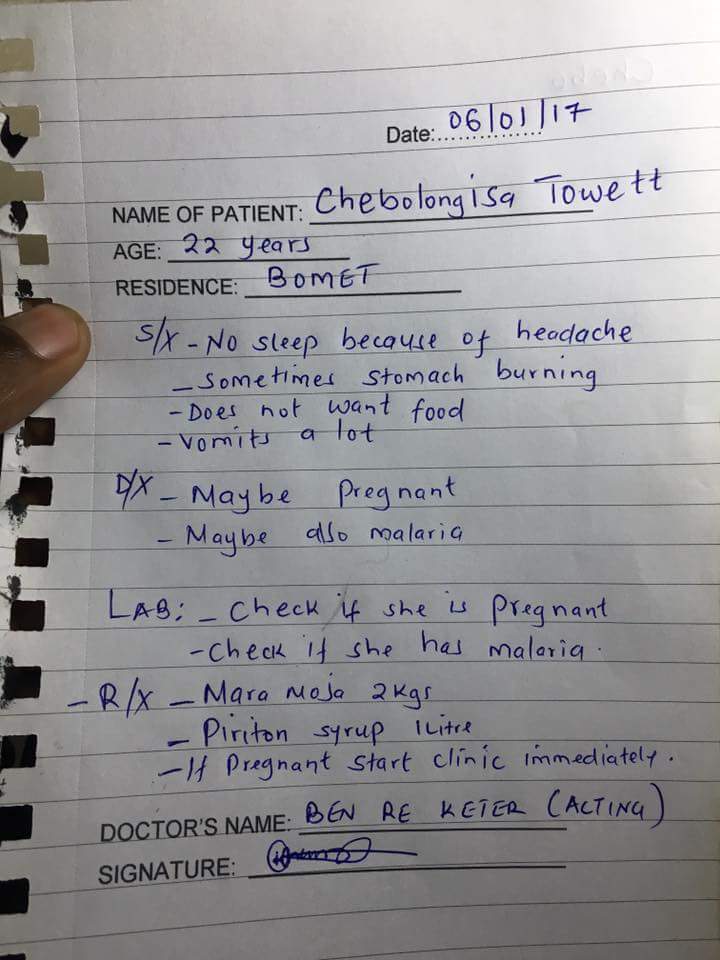 Date: 06/01/17
NAME OF PATIENT: Chebolongisa Towett
AGE: 22 years
RESIDENCE: BOMET
S/X - No sleep because of headache
- Sometimes stomach burning
- Does not want food
- Vomits a lot
D/X - Maybe pregnant
- Maybe also malaria
LAB: - Check if she is pregnant
- Check if she has malaria.
- R/X - Mara moja 2kgs
- Piriton syrup 1 Litre
- If Pregnant start clinic immediately.
DOCTOR'S NAME: BEN RE KETER (ACTING)
SIGNATURE: